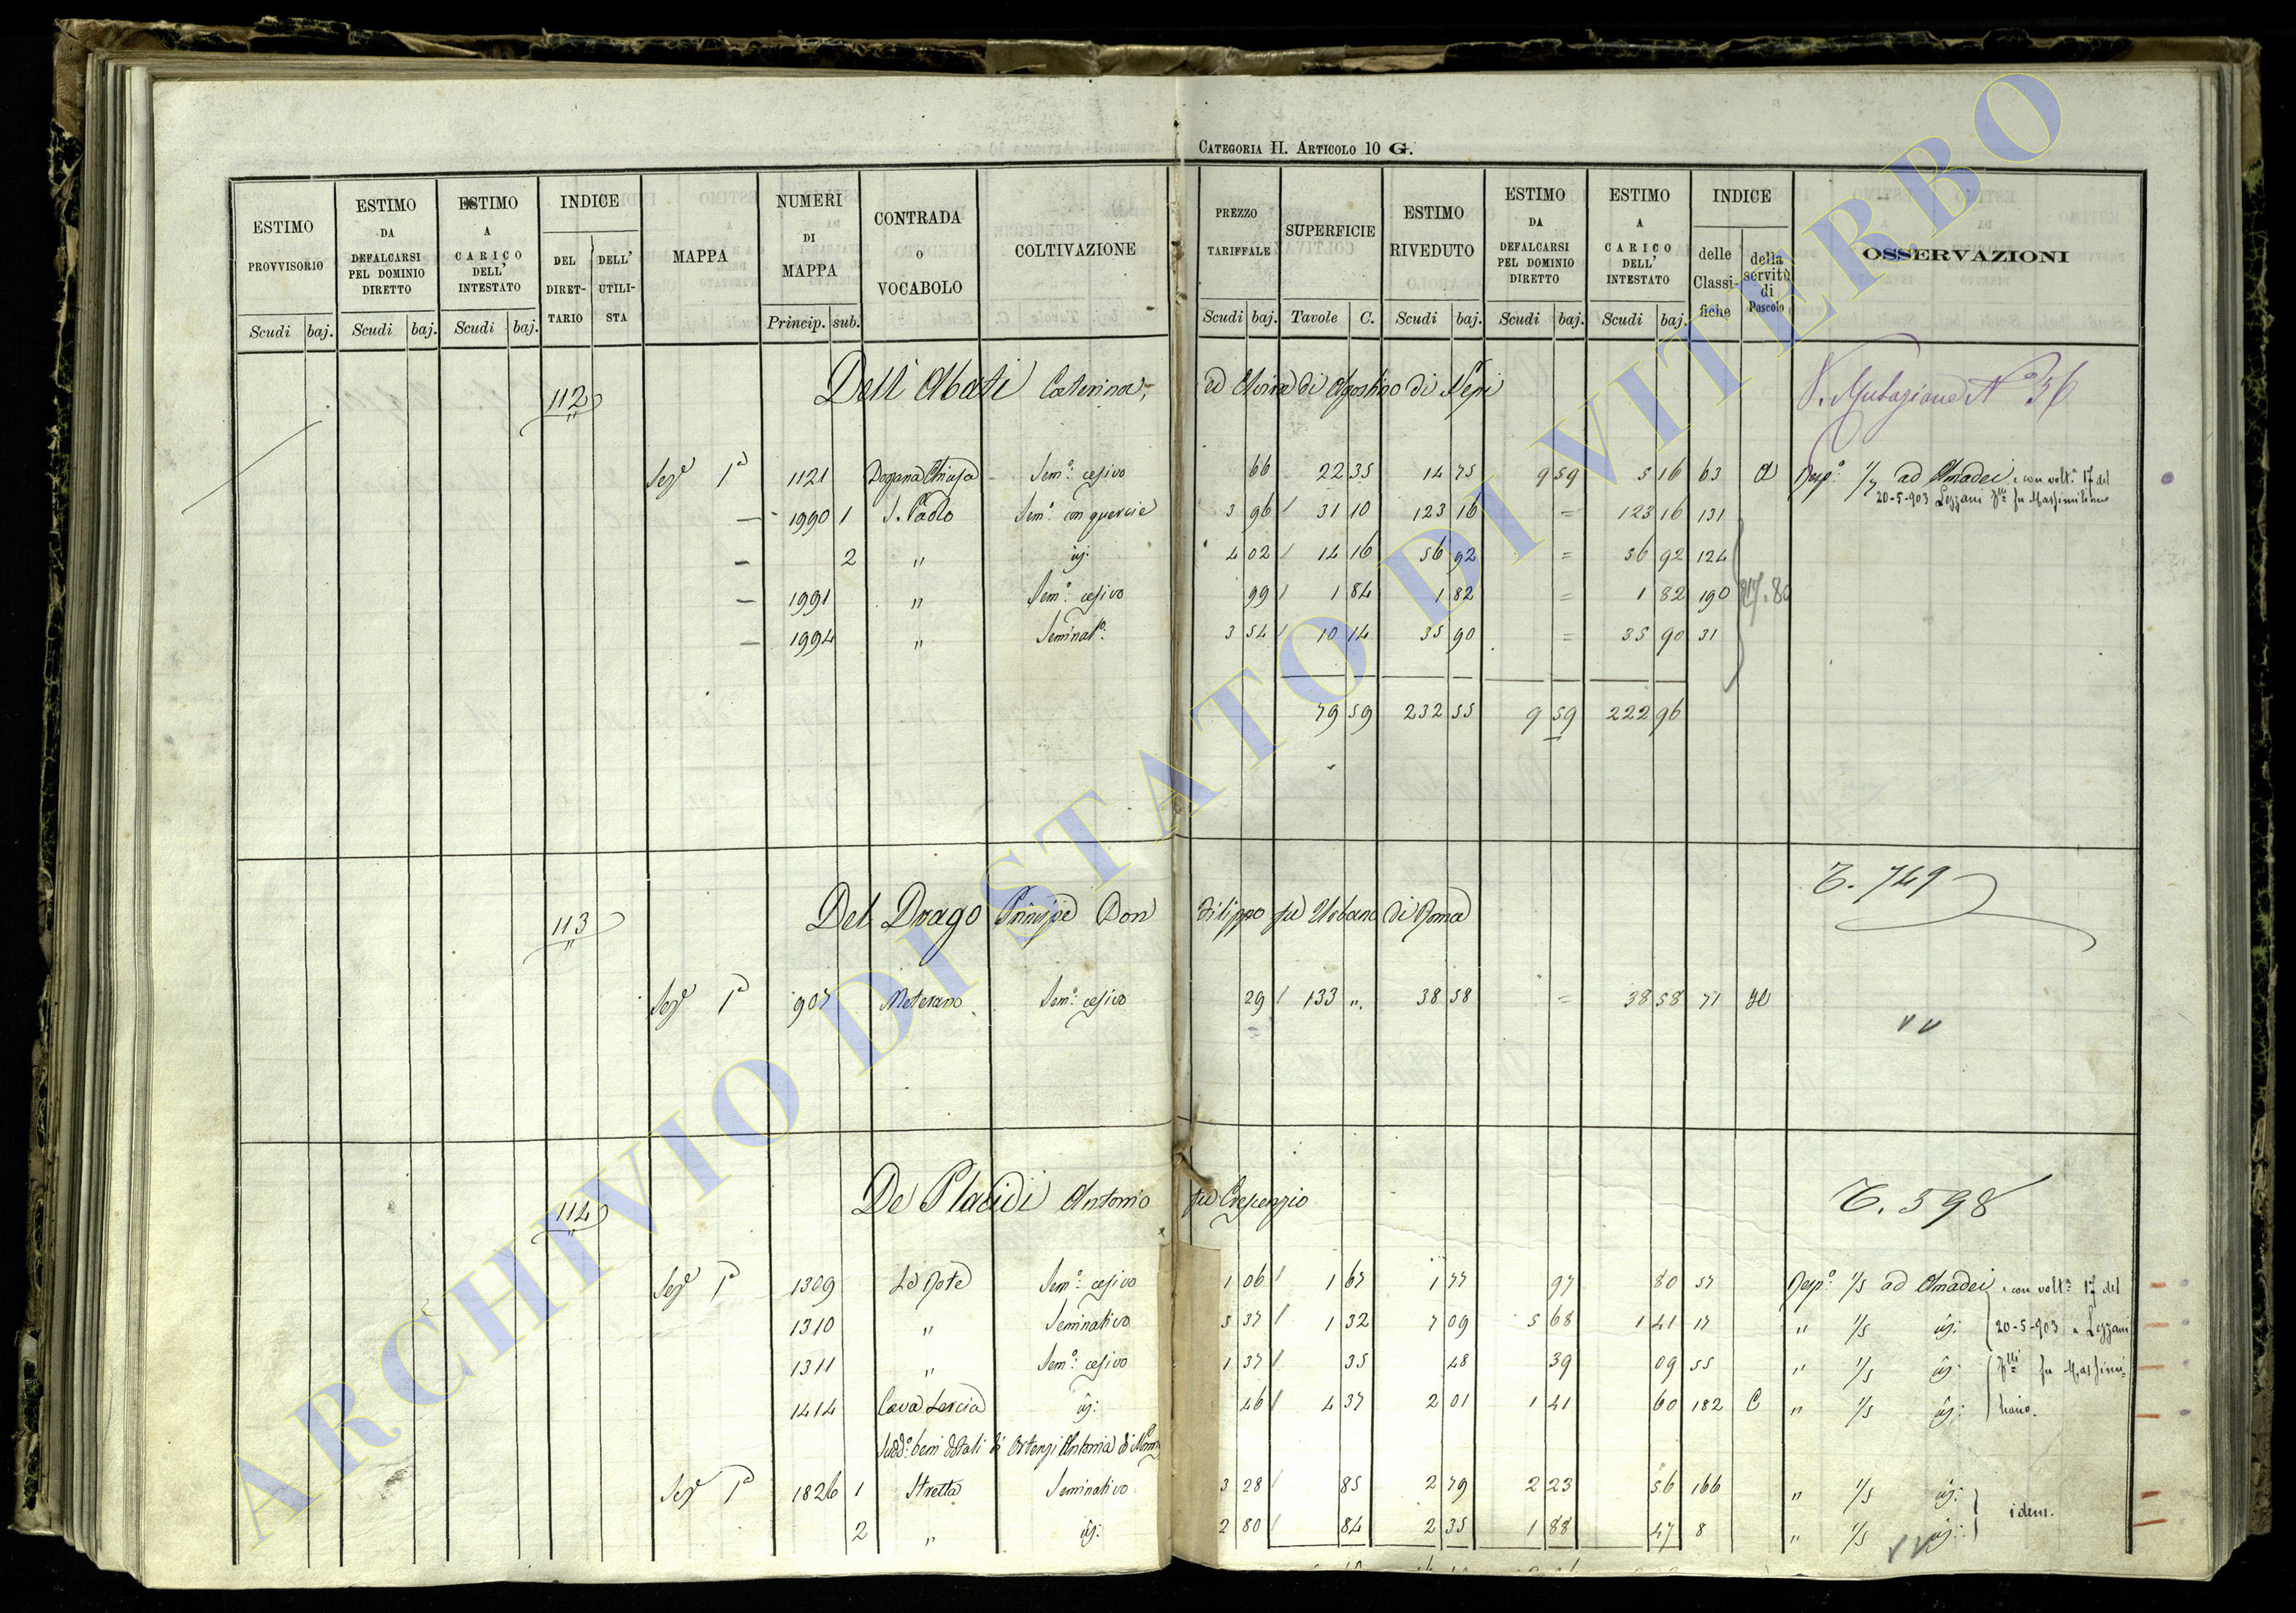 CATEGORIA II. ARTICOLO 10 G.
ESTIMO PROVVISORIO Scudi baj.
ESTIMO DA DEFALCARSI PEL DOMINIO DIRETTO Scudi baj.
ESTIMO A CARICO DELL' INTESTATO Scudi baj.
INDICE DEL DIRET-TARIO DELL' UTILI-STA
MAPPA
NUMERI DI MAPPA Princip. sub.
CONTRADA O VOCABOLO
COLTIVAZIONE
PREZZO TARIFFALE Scudi baj.
SUPERFICIE Tavole C.
ESTIMO RIVEDUTO Scudi baj.
ESTIMO DA DEFALCARSI PEL DOMINIO DIRETTO Scudi baj.
ESTIMO A CARICO DELL' INTESTATO Scudi baj.
INDICE delle Classi-fiche della servitù di Pascolo
OSSERVAZIONI
112 Dell' Abati Caterina, ed Anna di Agostino di Nepi V. Mutazione N° 36
Sez.e 1a 1121 Dogana Chiusa Sem.o cesivo 66 22 35 14 75 9 59 5 16 63 a Risp.o 1/7 ad Amadei e con volt.a 17 del
20-5-903 Lezzani F.lli fu Massimiliano
— 1990 1 S. Paolo Sem.o con quercie 3 96 31 10 123 16 = 123 16 131
— 2 " id: 4 02 14 16 56 92 = 56 92 124
— 1991 " Sem.o cesivo 99 1 84 1 82 = 1 82 190 217.80
— 1994 " Seminat.o 3 54 10 14 35 90 = 35 90 31
79 59 232 55 9 59 222 96
113 Del Drago Principe Don Filippo fu Urbano di Roma T. 749
Sez.e 1a 907 Meterano Sem.o cesivo 29 133 " 38 58 = 38 58 71
114 De Placidi Antonio fu Crescenzio T. 598
Sez.e 1a 1309 Le Rote Sem.o cesivo 1 06 1 67 1 77 97 80 57 Risp.o 1/5 ad Amadei e con volt.a 17 del
1310 " Seminativo 5 37 1 32 7 09 5 68 1 41 17 " 1/5 id: 20-5-903 a Lezzani
1311 " Sem.o cesivo 1 37 35 48 39 09 55 " 1/5 id: F.lli fu Massimi-
1414 Cava Lercia id: 46 4 37 2 01 1 41 60 182 C " 1/5 id: liano.
Sudd.o beni dotali di Ortenzi Antonia di
Sez.e 1a 1826 1 Stretta Seminativo 3 28 85 2 79 2 23 56 166 " 1/5 id: idem.
2 " id: 2 80 84 2 35 1 88 47 8 " 1/5 id:
ARCHIVIO DI STATO DI VITERBO